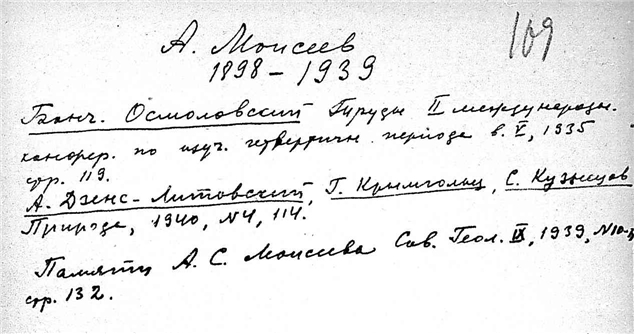 109
А. Моисеев
1898 – 1939
Бонч. Осмоловский Труды II международн.
конфер. по изуч. четвертичн. периода в. V, 1935
стр. 119.
А. Дзенс-Литовский, Г. Крымгольц, С. Кузнецов
Природа, 1940, N4, 114.
Памяти А. С. Моисеева Сов. Геол. IX, 1939, N10-
стр. 132.